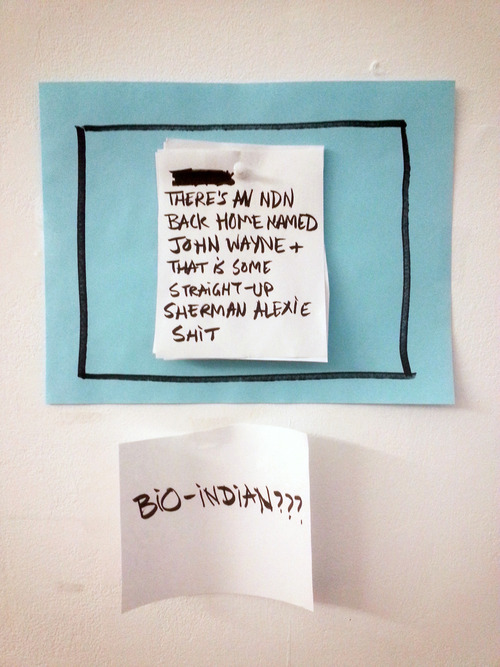 THERE'S AN NDN
BACK HOME NAMED
JOHN WAYNE +
THAT iS SOME
STRAiGHT-UP
SHERMAN ALEXiE
SHiT
BiO-iNDiAN???